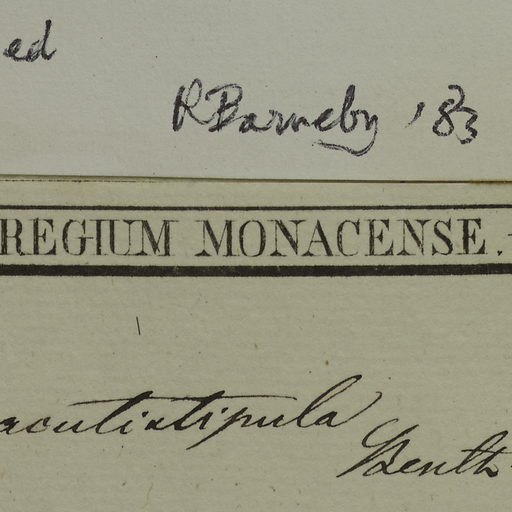 ed
R Barneby '83
REGIUM MONACENSE.
acutistipula
Benth